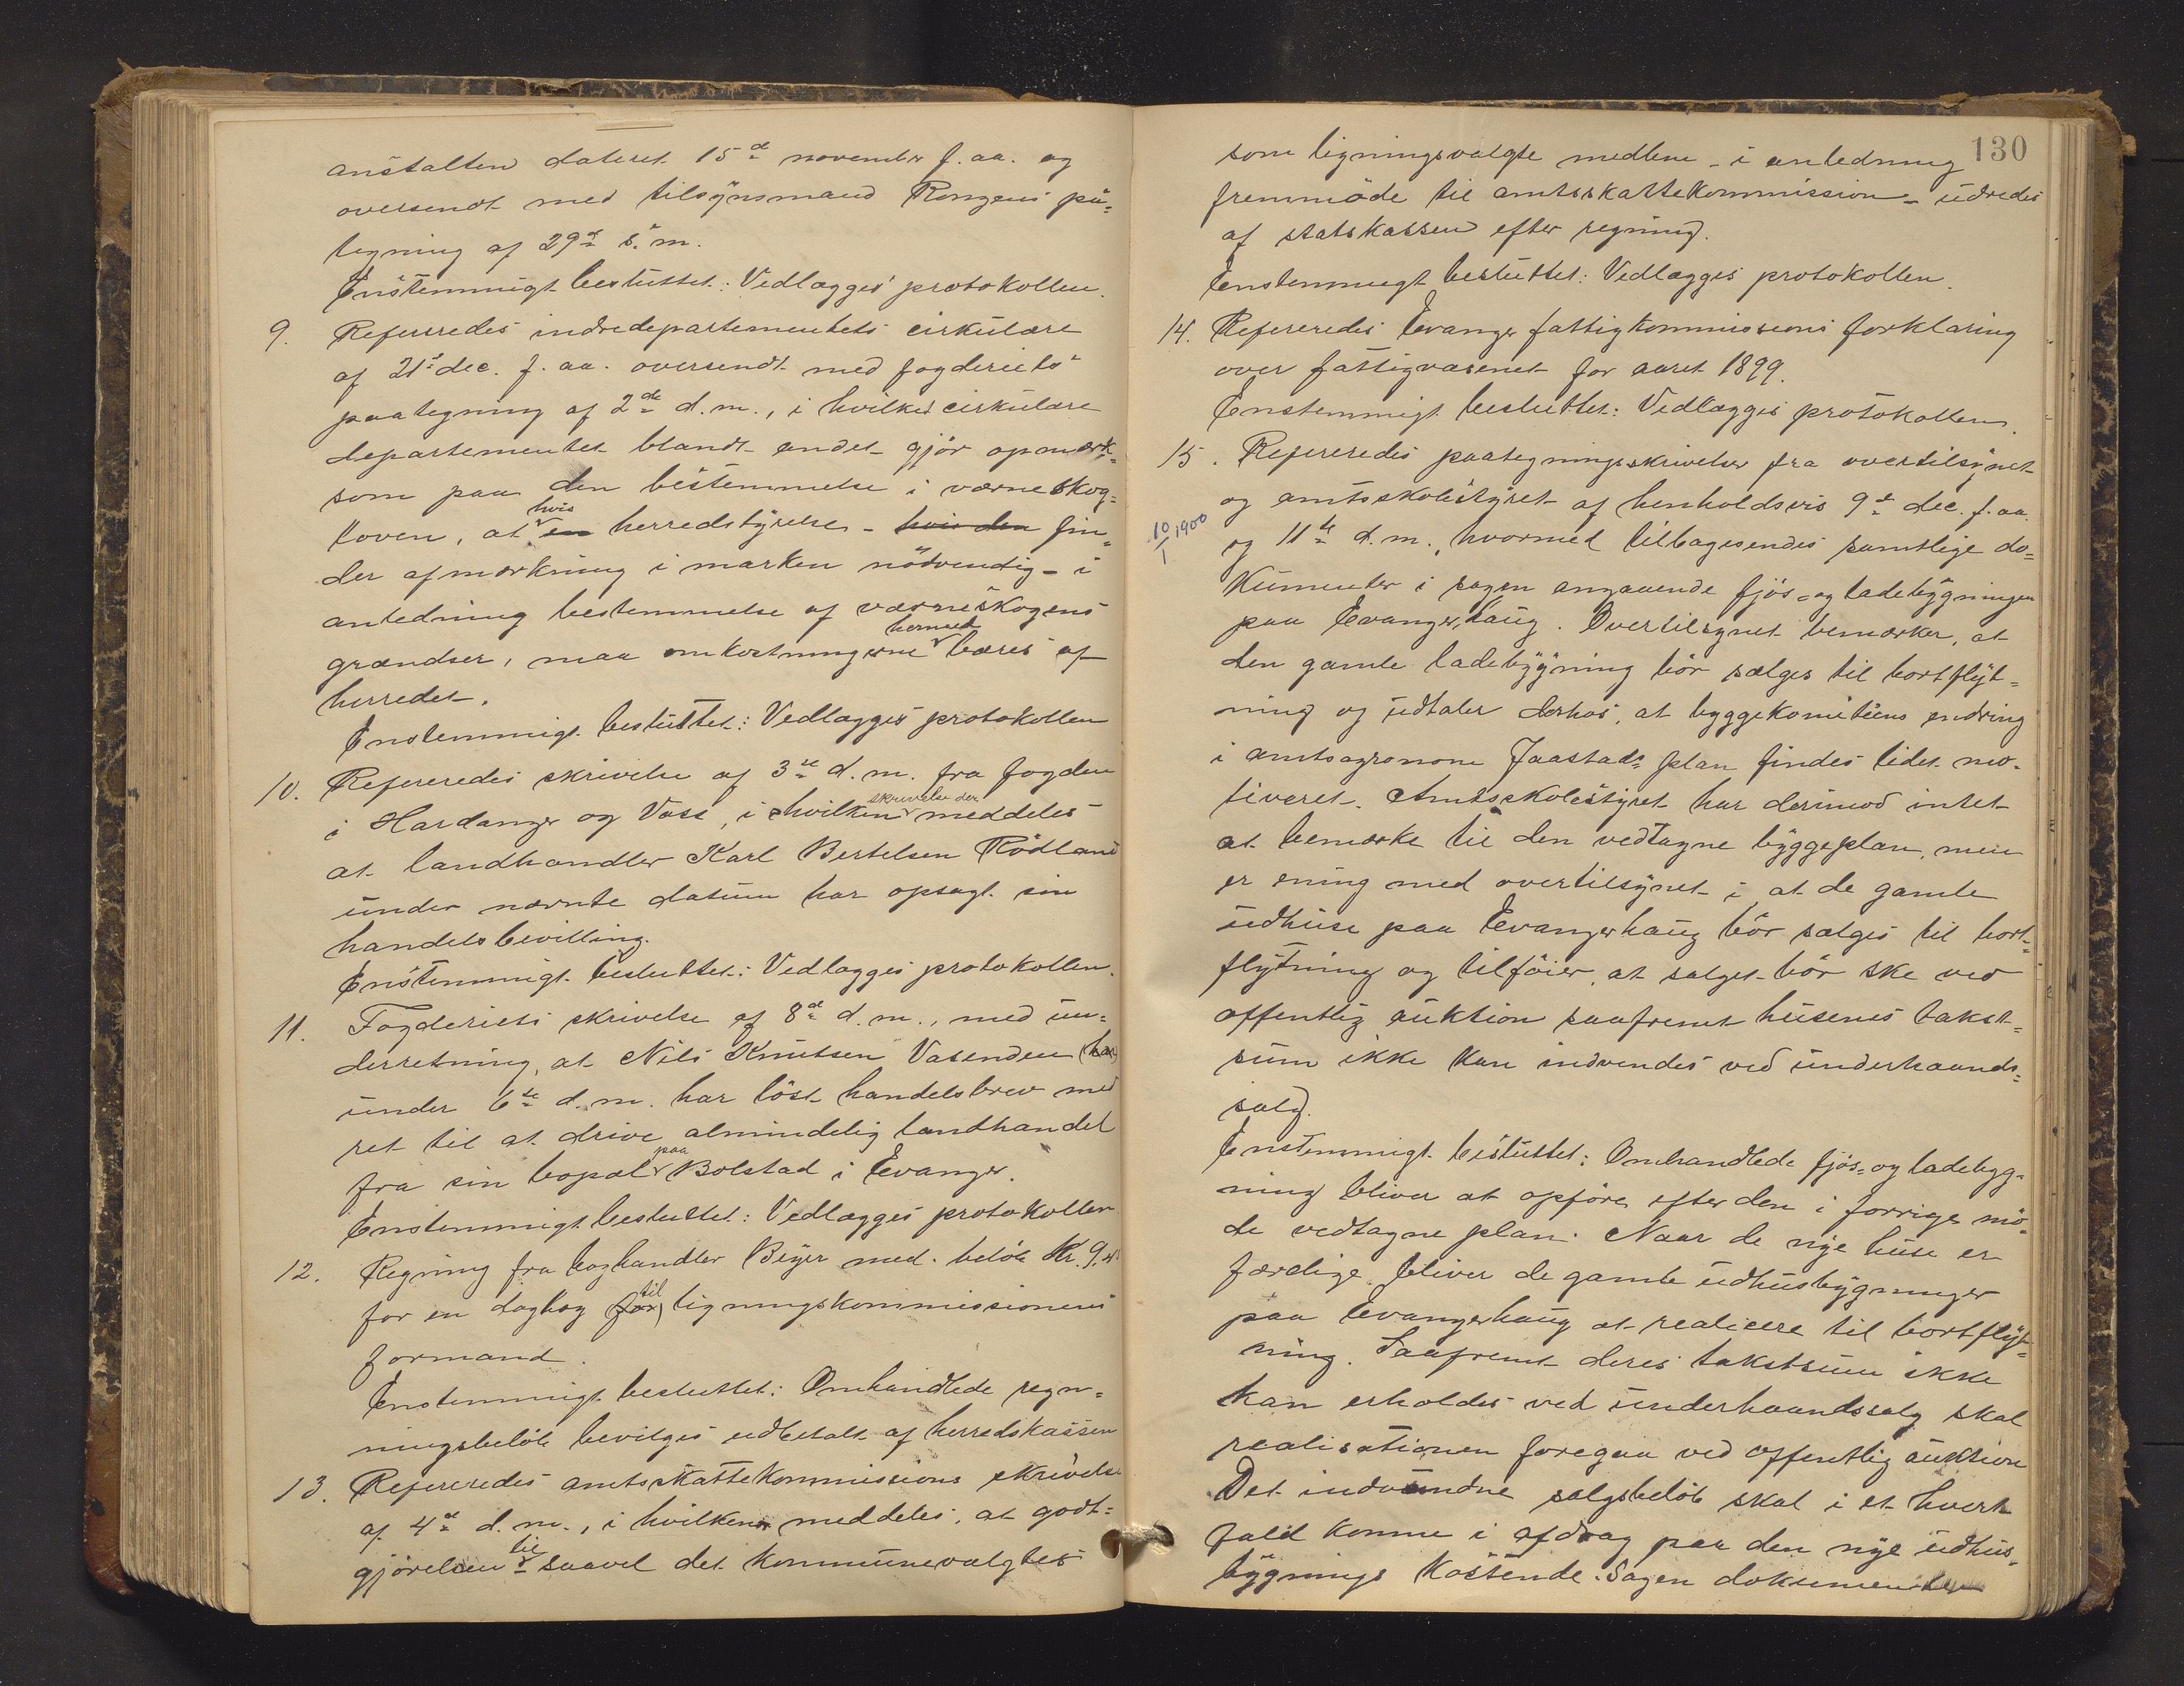 anstalten dateret 15de november f. aa. og
oversendt med tilsynsmand Rongens på=
tegning af 29de s. m.
Enstemmigt besluttet: Vedlægges protokollen.
9. Refereredes indredepartementets cirkulære
af 21de dec. f. aa. oversendt med fogderiets
paategning af 2den d. m., i hvilket cirkulære
departementet blandt andet gjør opmærk=
som paa den bestemmelse i værneskog=
loven, at hvis en herredstyrelse - hvis den fin=
der afmærkning i marken nödvendig - i
anledning bestemmelse af værneskogens
grændser, maa omkostningerne hermed bæres af
herredet.
Enstemmigt besluttet: Vedlægges protokollen
10. Refereredes skrivelse af 3de d. m. fra fogden
i Hardanger og Voss, i hvilken skrivelse der meddeles
at landhandler Karl Bertelsen Rödland
under nævnte datum har opsagt sin
handelsbevilling.
Enstemmigt besluttet: Vedlægges protokollen.
11. Fogderiets skrivelse af 8de d. m., med un=
derretning, at Nils Knutsen Vasenden (har)
under 6te d. m. har löst handelsbrev med
ret til at drive almindelig landhandel
fra sin bopæl paa Bolstad i Evanger.
Enstemmigt besluttet: Vedlægges protokollen
12. Regning fra boghandler Beyer med. belöb Kr. 9,
for en dagbog (for) til ligningskommissionens
formand.
Enstemmigt besluttet: Omhandlede regn=
ningsbelöb bevilges udbetalt af herredskassen
13. Refereredes amtsskattekommissions skrivelse
af 4de d. m., i hvilken meddeles, at godt=
gjörelsen til saavel det kommunevalgtes
130
som ligningsvalgte medlem - i anledning
fremmöde til amtsskattekommission - udredes
af statskassen efter regning.
Enstemmigt besluttet: Vedlægges protokollen.
14. Refereredes Evanger fattigkommissions forklaring
over fattigvæsenet for aaret 1899.
Enstemmigt besluttet: Vedlægges protokollen.
15. Refereredes paategningsskrivelser fra overtilsynet
og amtsskolestyret af henholdsvis 9de dec. f. aa.
10/1 1900
og 11te d. m., hvormed tilbagesendes samtlige do=
kumenter i sagen angaaende fjös= og ladebygningen
paa Evangerhaug. Overtilsynet bemærker, at
den gamle ladebygning bör sælges til bortflyt=
ning og udtaler derhos, at byggekomiteens endring
i amtsagronom Jaastads plan findes lidet mo=
tiveret. Amtsskolestyret har derimod intet
at bemærke til den vedtagne byggeplan, men
er enig med overtilsynet i, at de gamle
udhuse paa Evangerhaug bör sælges til bort=
flytning og tilföier, at salget bör ske ved
offentlig auktion saafremt husenes takst=
sum ikke kan indvendes ved underhaands=
salg.
Enstemmigt besluttet: Omhandlede fjös= og ladebyg=
ning bliver at opföre efter den i forrige mö=
de vedtagne plan. Naar de nye huse er
færdige, bliver de gamle udhusbygninger
paa Evangerhaug at realisere til bortflyt=
ning. Saafremt deres takstsum ikke
kan erholdes ved underhaandssalg skal
realisationen foregaa ved offentlig auktion
Det indvundne salgsbelöb skal i et hvert
fald komme i afdrag paa den nye udhus=
bygnings kostende. Sagen dokumenter